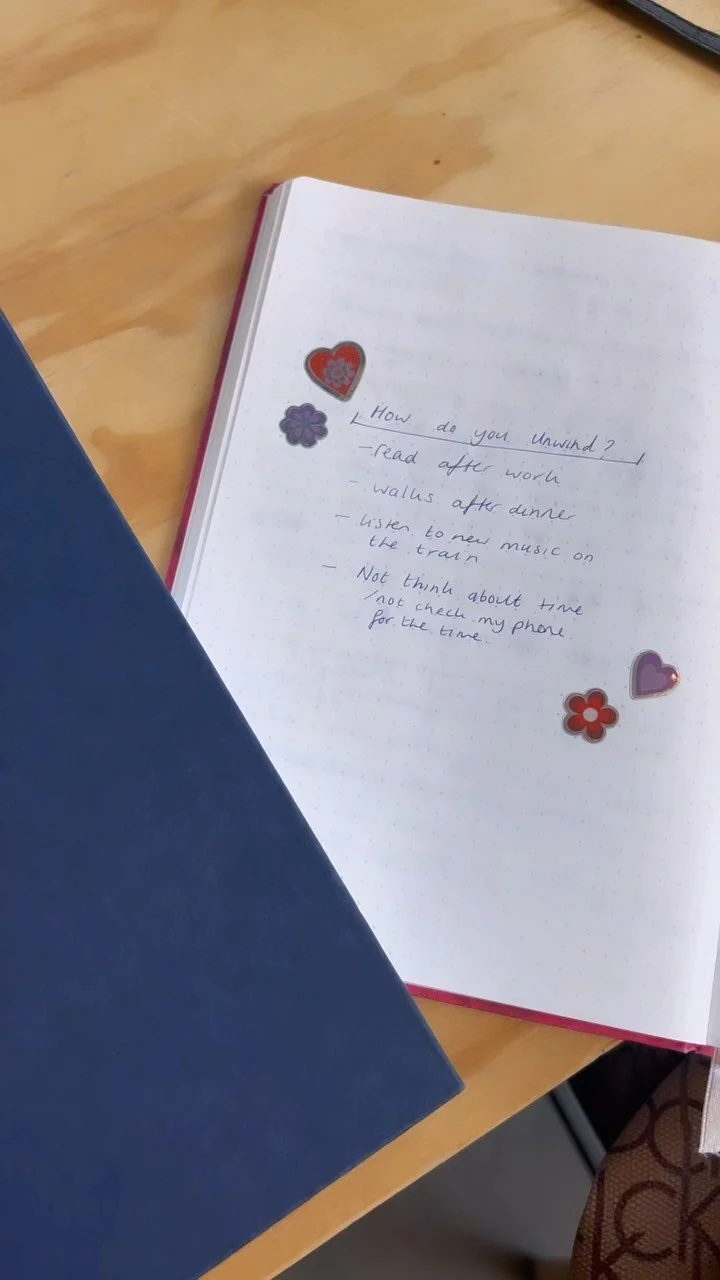 How do you unwind?
- read after work
- walks after dinner
- listen to new music on
the train
- Not think about time
/not check my phone
for the time.
CK